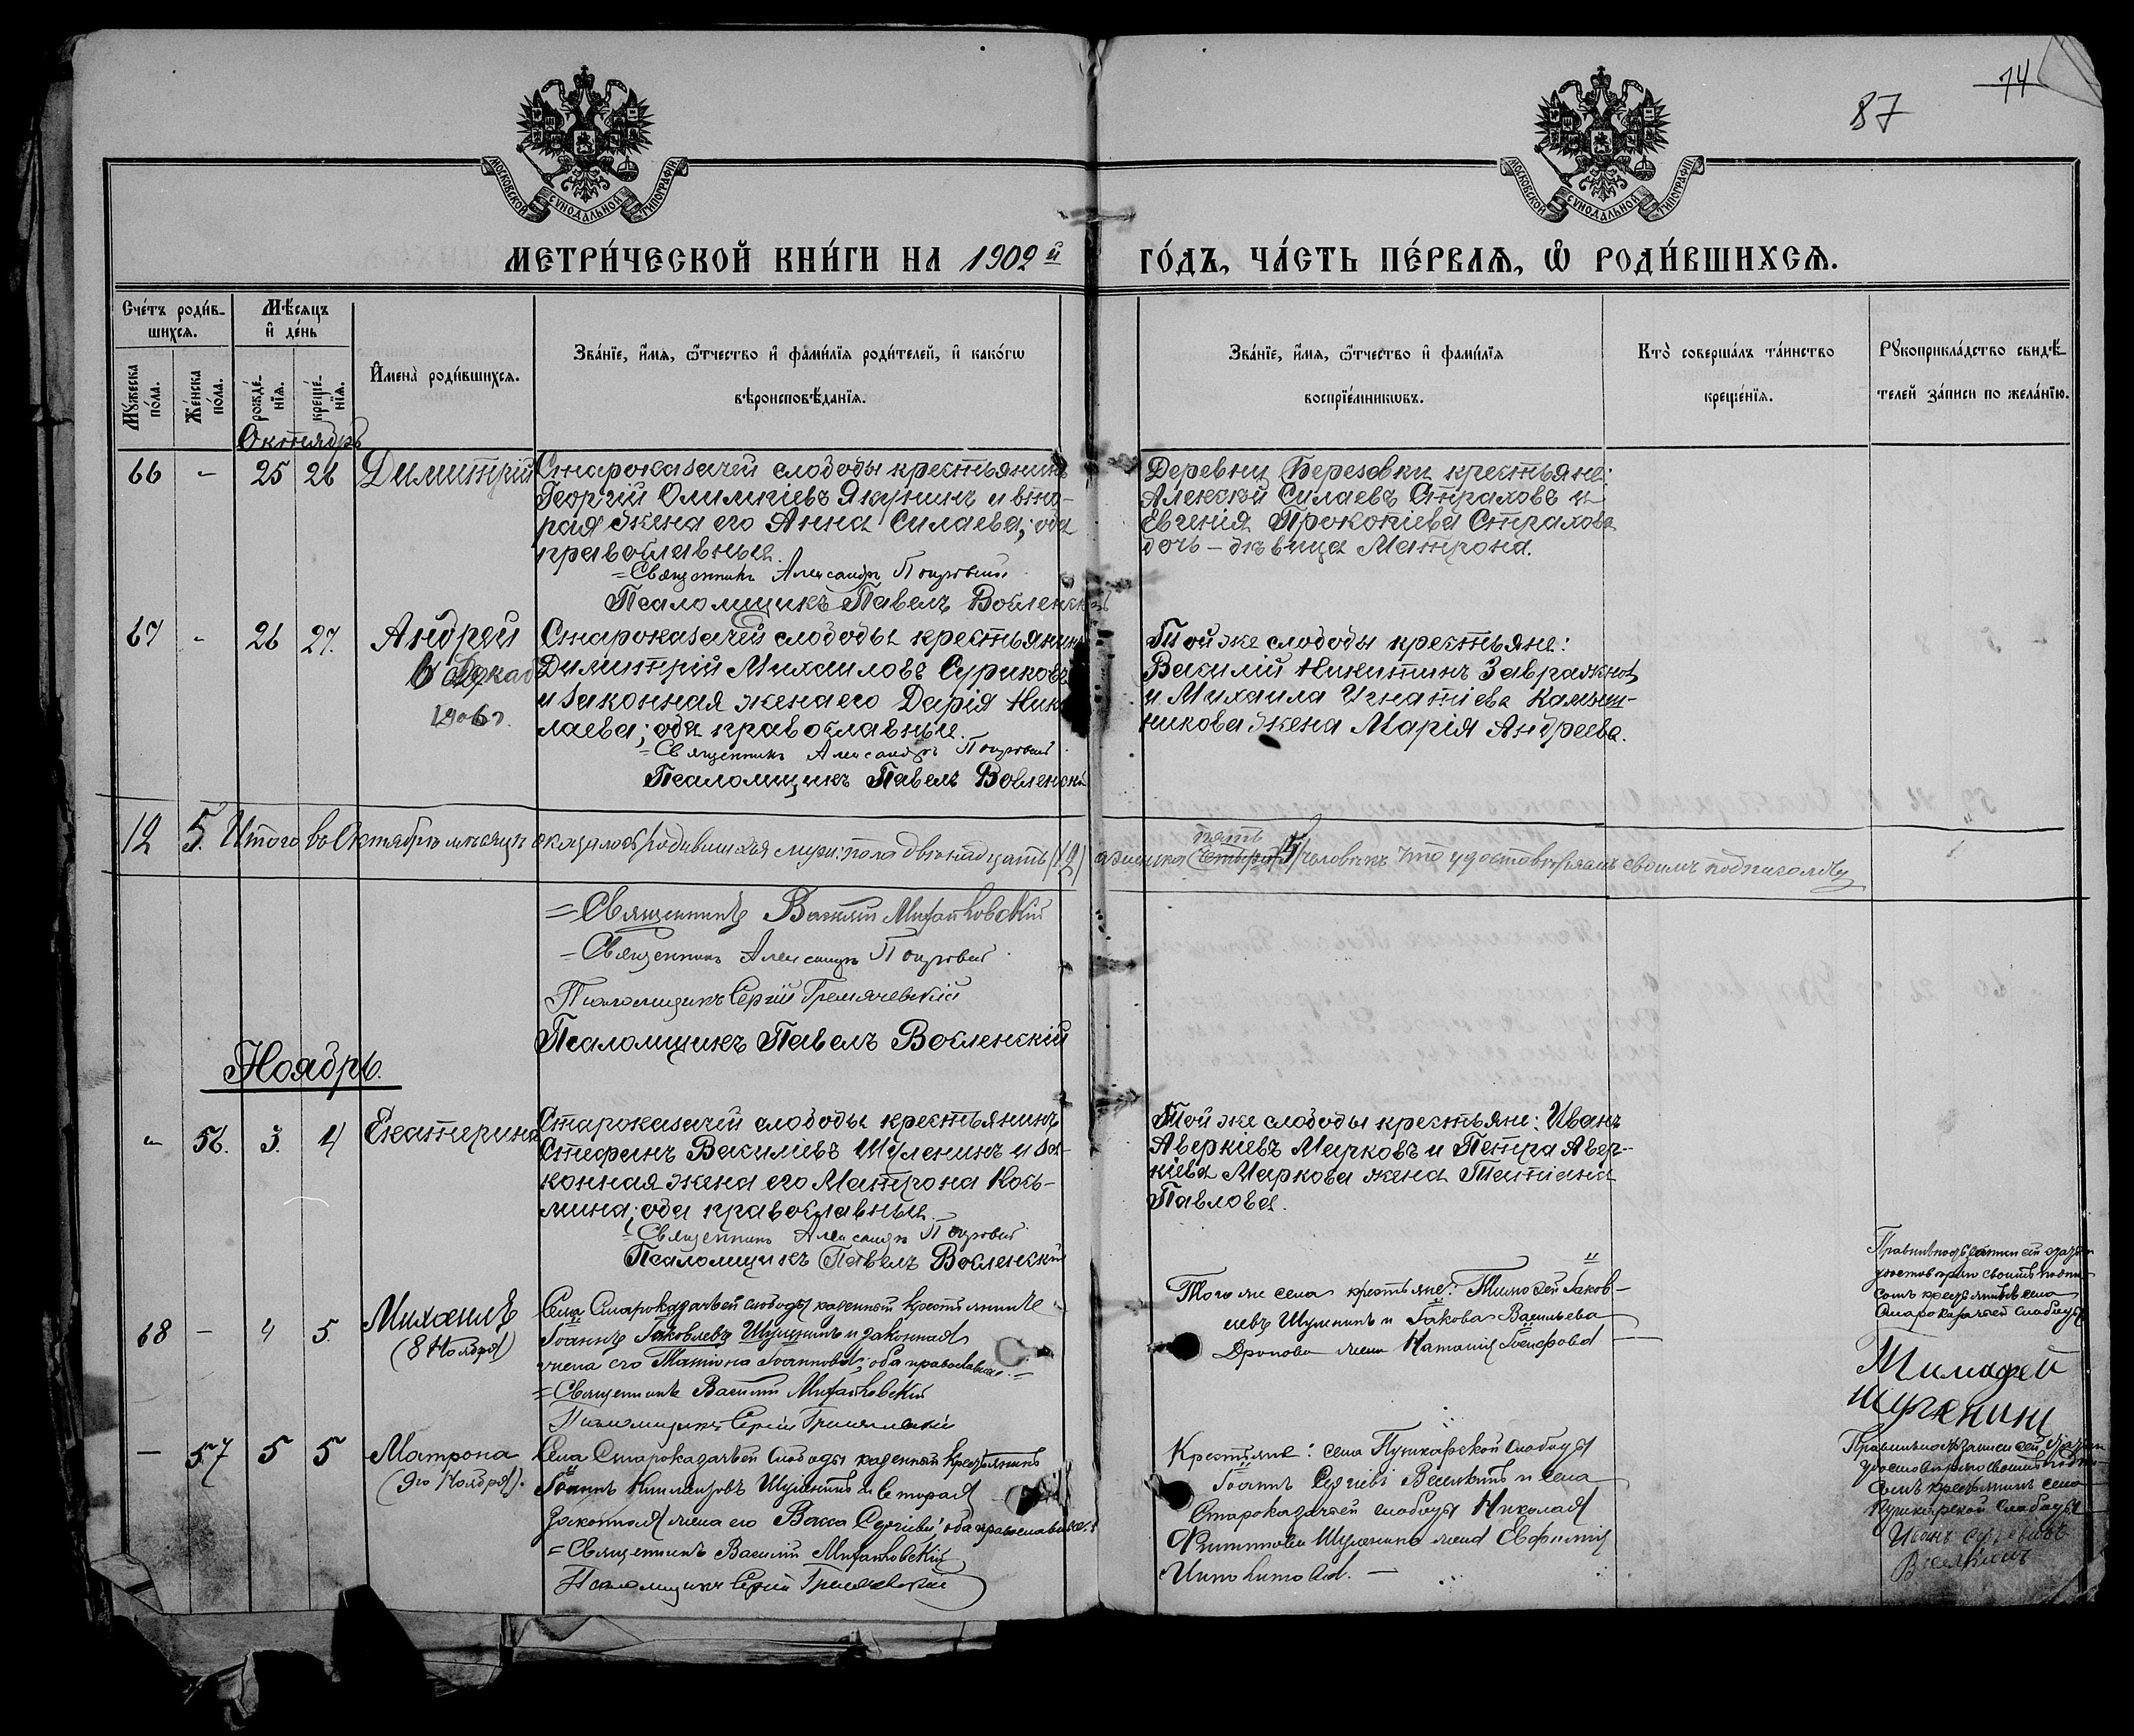 74
87
МОСКОВСКОЙ СѴНОДАЛЬНОЙ ТИПОГРАФІИ
МОСКОВСКОЙ СѴНОДАЛЬНОЙ ТИПОГРАФІИ
МЕТРИ́ЧЕСКОЙ КНИ́ГИ НА 1902й ГО́ДЪ, ЧА́СТЬ ПЕ́РВАѦ, Ѡ҆ РОДИ́ВШИХСѦ.
Сче́тъ роди́в-
шихсѧ.
Мѣ́сѧцъ
и҆ де́нь
Мꙋ́жеска
по́ла.
Же́нска
по́ла.
рожде́-
нїѧ.
креще́-
нїѧ.
И҆мена̀ роди́вшихсѧ.
Зва́нїе, и҆́мѧ, ѻ҆́тчество и҆ фами́лїѧ роди́телей, и҆ како́гѡ
вѣроисповѣ́данїѧ.
Зва́нїе, и҆́мѧ, ѻ҆́тчество и҆ фами́лїѧ
воспрїе́мникѡвъ.
Кто̀ соверша́лъ та́инство
креще́нїѧ.
Рꙋкоприкла́дство свидѣ́-
телей за́писи по жела́нїю.
Октябрь
66 - 25 26 Димитрій
Староказачей слободы крестьянинъ
Георгій Олимпіевъ Якунинъ и вто-
рая жена его Анна Силаева; оба
православные.
Священникъ Александръ Покровскій
Псаломщикъ Павелъ Вобленскій
Деревни Березовки крестьяне:
Алексѣй Силаевъ Страховъ и
Евгенія Прокопіева Страхова
дочь - дѣвица Матрона.
67 - 26 27. Андрей
1906 г.
Староказачей слободы крестьянинъ
Димитрій Михаиловъ Суриковъ
и законная жена его Дарія Нико
лаева; оба православные.
Священникъ Александръ Покровскій
Псаломщикъ Павелъ Вобленскій
Той же слободы крестьяне:
Василій Никитинъ Завражнов
и Михаила Игнатіева Камыш-
никова жена Марія Андреева.
12 5. Итого въ Октябрѣ мѣсяцѣ оказалось родившихся муж: пола двѣнадцать (12) а женска четыре пять (5) человѣкъ что удостовѣряемъ своимъ подписомъ
=Священникъ Василій Михайловскій
-Священникъ Александръ Покровскій
Псаломщикъ Сергій Гремячевскій
Псаломщикъ Павелъ Вобленскій
Ноябрь.
" 56. 3. 4 Екатерина
Староказачей слободы крестьянинъ
Стефанъ Василіевъ Шуленинъ и за-
конная жена его Матрона Козь-
мина; оба православные.
Священникъ Александръ Покровскій
Псаломщикъ Павелъ Вобленскій
Той же слободы крестьяне: Иванъ
Аверкіевъ Марковъ и Петра Авер-
кіева Маркова жена Татіана
Павлова.
68 - 4 5. Михаилъ
(8 Ноября)
Села Староказачьей слободы казенный крестьянинъ
Іоаннъ Іаковлевъ Шуленинъ и законная
жена его Татіана Іоаннова; оба православные.
=Священникъ Василій Михайловскій
Псаломщикъ Сергій Гремячевскій
Того же села крестьяне: Тимофей Іаков-
левъ Шуленинъ и Іакова Васильева
Дропова жена Наталія
Староказачьей слободы
Тимофей
Шуленинъ
- 57 5 5 Матрона
(9го Ноября).
Села Староказачьей слободы казенный крестьянинъ
Іоаннъ Шуленинъ и вторая
законная жена его Васса Сергіева; оба православные.
=Священникъ Василій Михайловскій
Псаломщикъ Сергій Гремячевскій
Крестьяне: села Пушкарской слободы
Іоаннъ Сергіевъ и села
Староказачьей слободы Николая
Филиппова Шуленина жена Евфимія
Пушкарской слободы